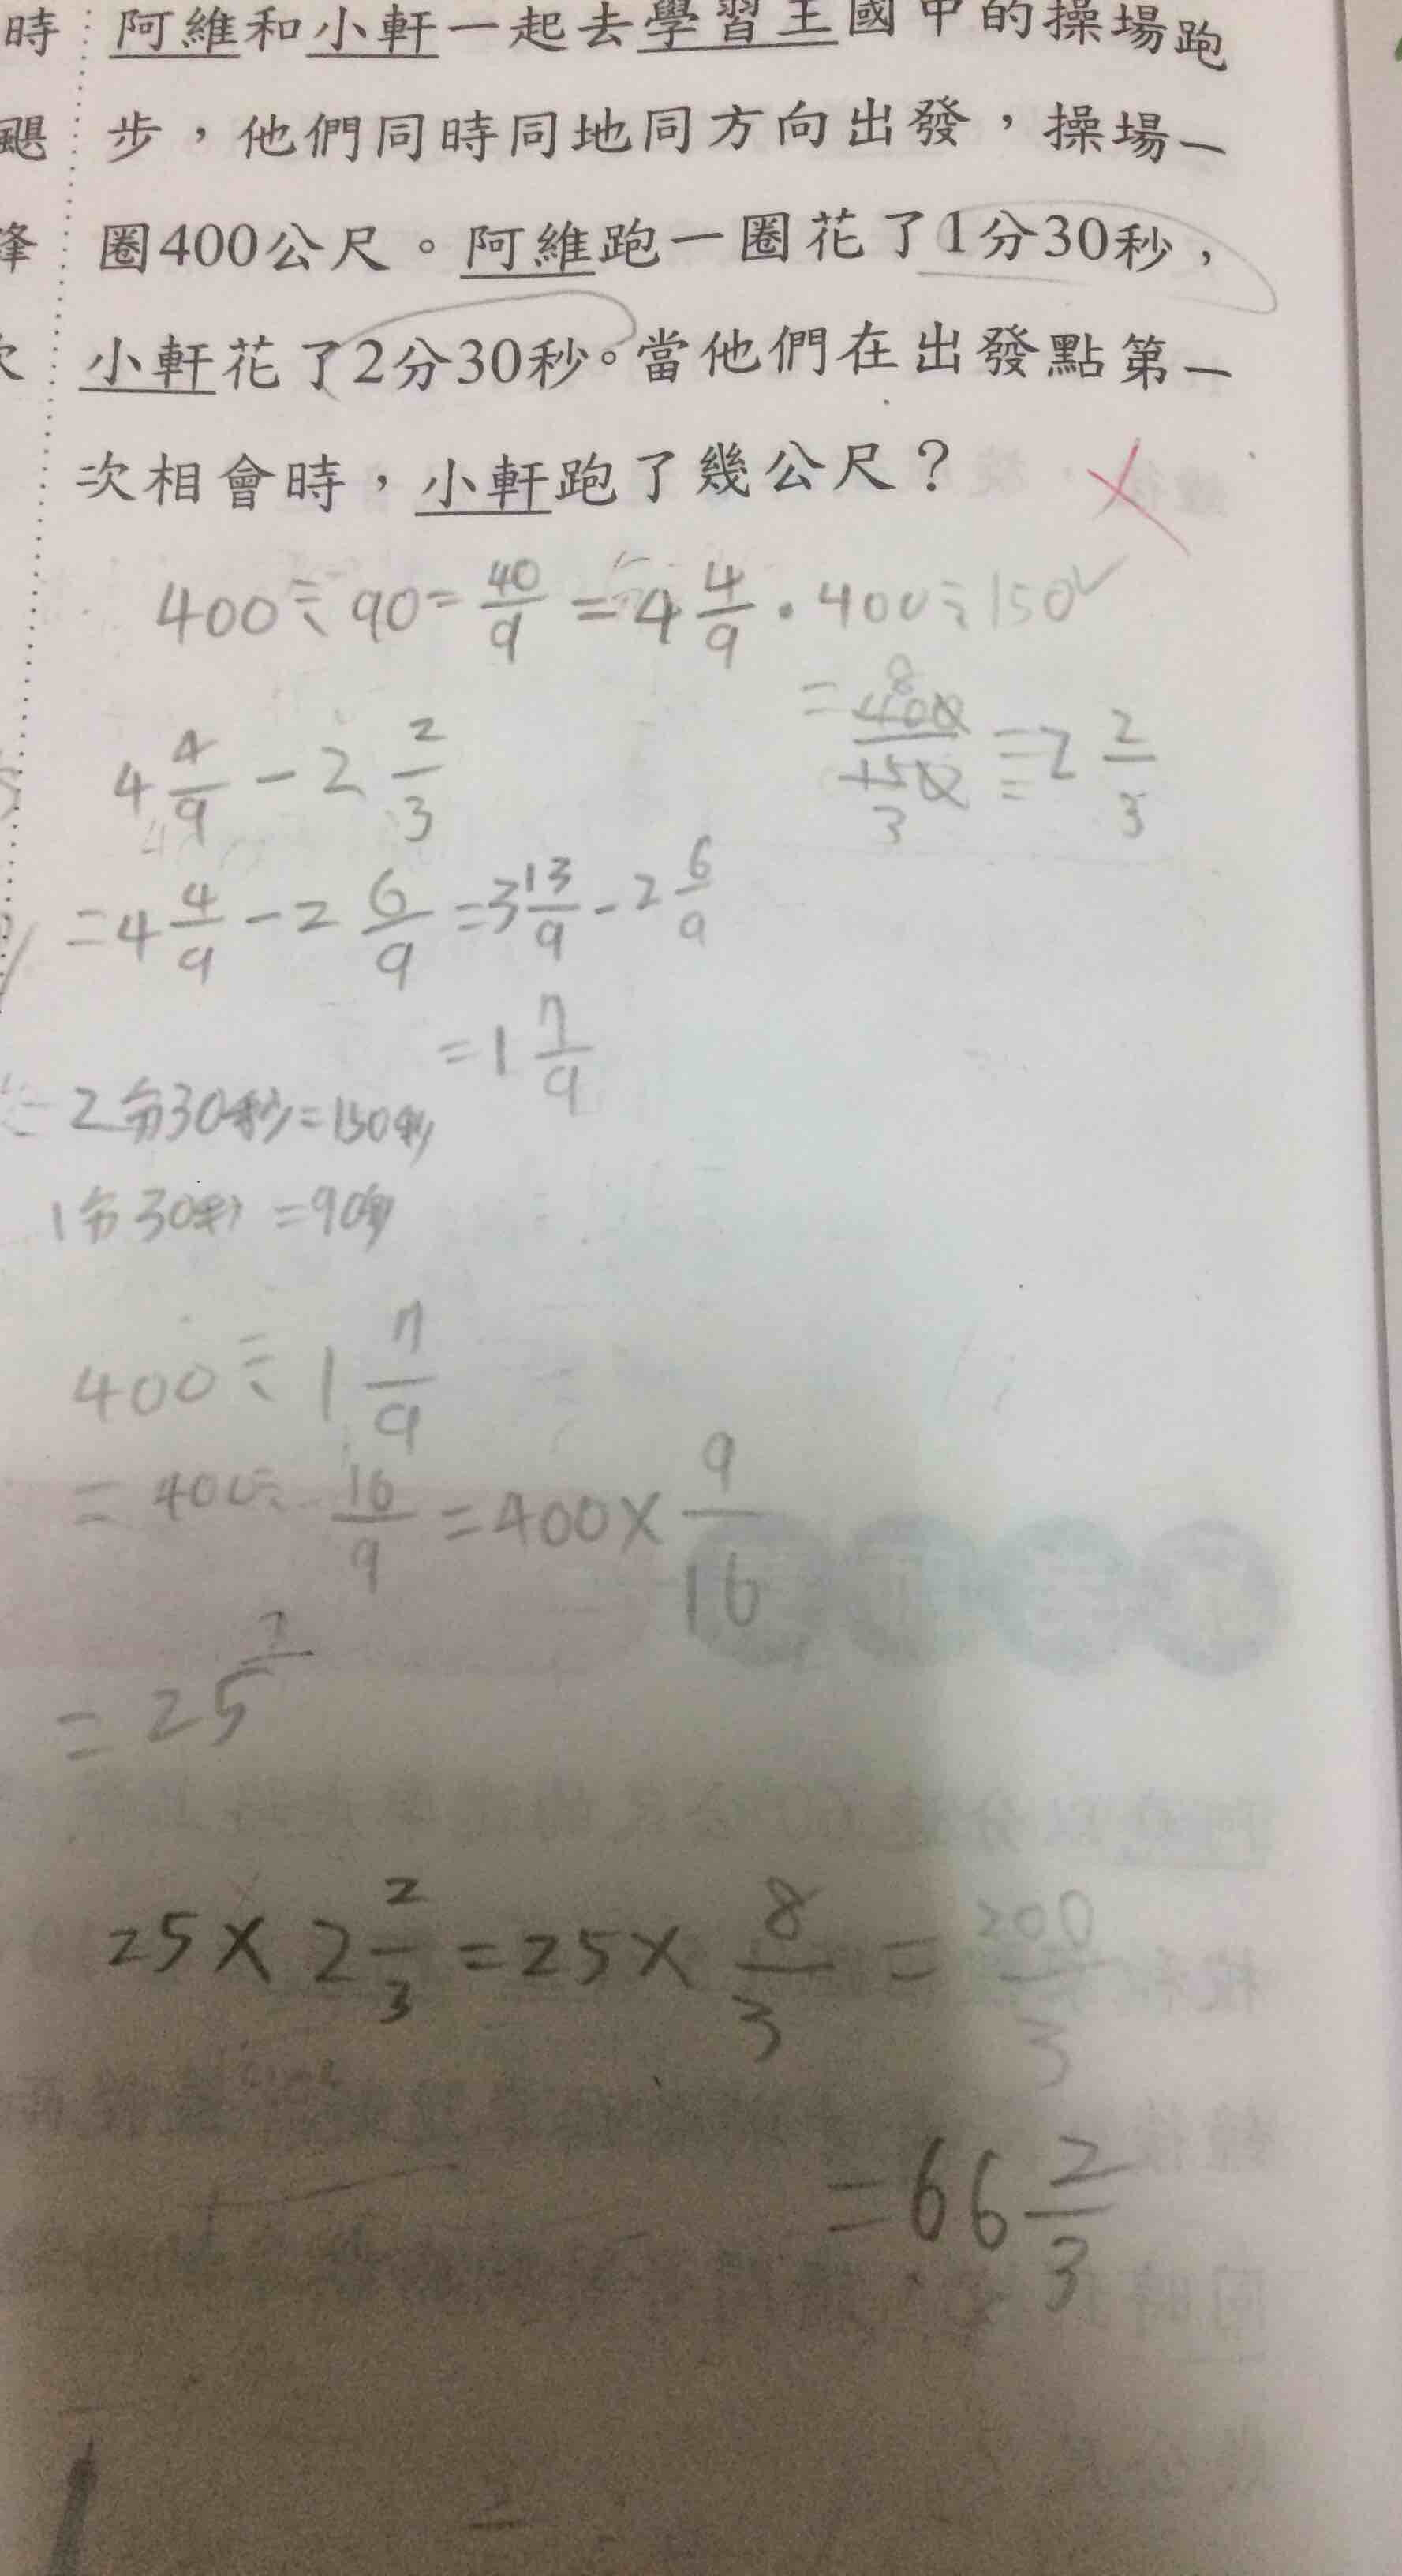 時 阿維和小軒一起去學習王國中的操場跑
颶 步，他們同時同地同方向出發，操場一
圈400公尺。阿維跑一圈花了1分30秒，
小軒花了2分30秒。當他們在出發點第一
次相會時，小軒跑了幾公尺？
400÷90=40/9=4 4/9 . 400÷150
=400/150 8/3 =2 2/3
4 4/9 - 2 2/3
=4 4/9 - 2 6/9 =3 13/9 - 2 6/9
=1 7/9
2分30秒=150秒
1分30秒=90秒
400÷1 7/9
=400÷16/9=400×9/16
=25
25×2 2/3=25×8/3=200/3
=66 2/3